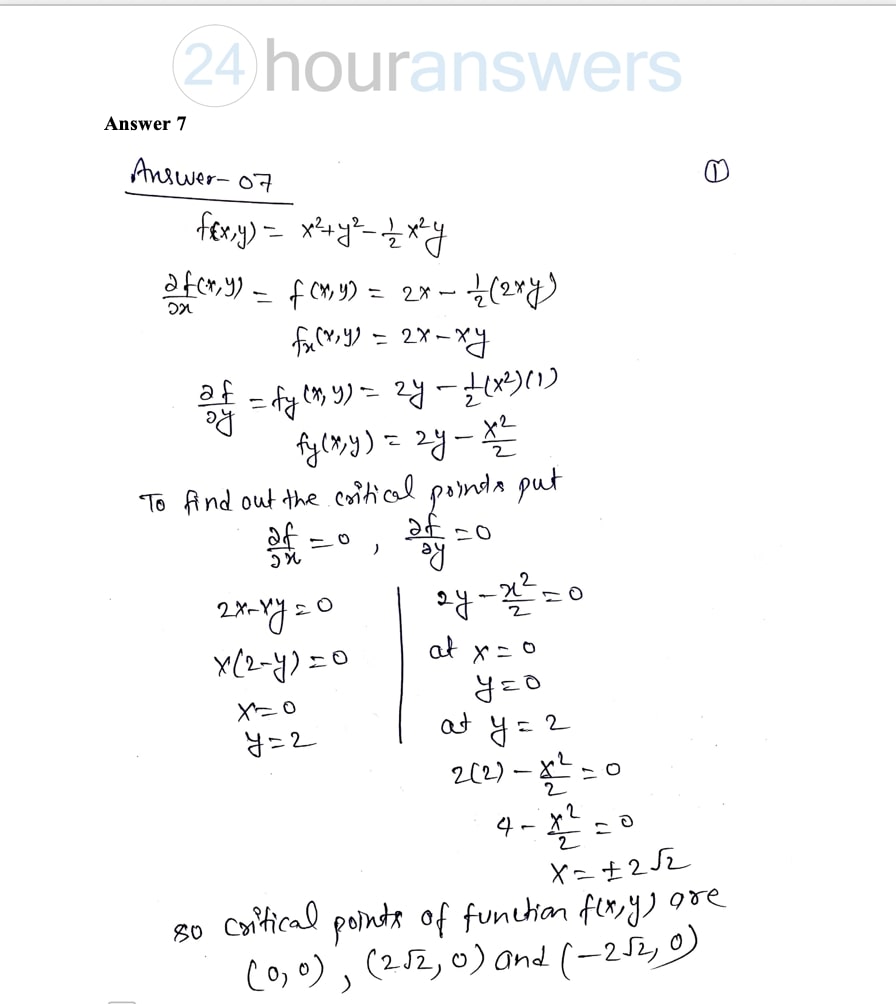 24 houranswers
Answer 7
Answer- 07 ①
f(x,y) = x²+y²-½x²y
∂f(x,y)/∂x = f(x,y) = 2x - ½(2xy)
fx(x,y) = 2x-xy
∂f/∂y = fy(x,y) = 2y - ½(x²)(1)
fy(x,y) = 2y - x²/2
To find out the critical points put
∂f/∂x = 0 , ∂f/∂y = 0
2x-xy=0
x(2-y)=0
x=0
y=2
2y - x²/2 = 0
at x=0
y=0
at y=2
2(2) - x²/2 = 0
4 - x²/2 = 0
x=±2√2
so critical points of function f(x,y) are
(0,0), (2√2,0) and (-2√2,0)